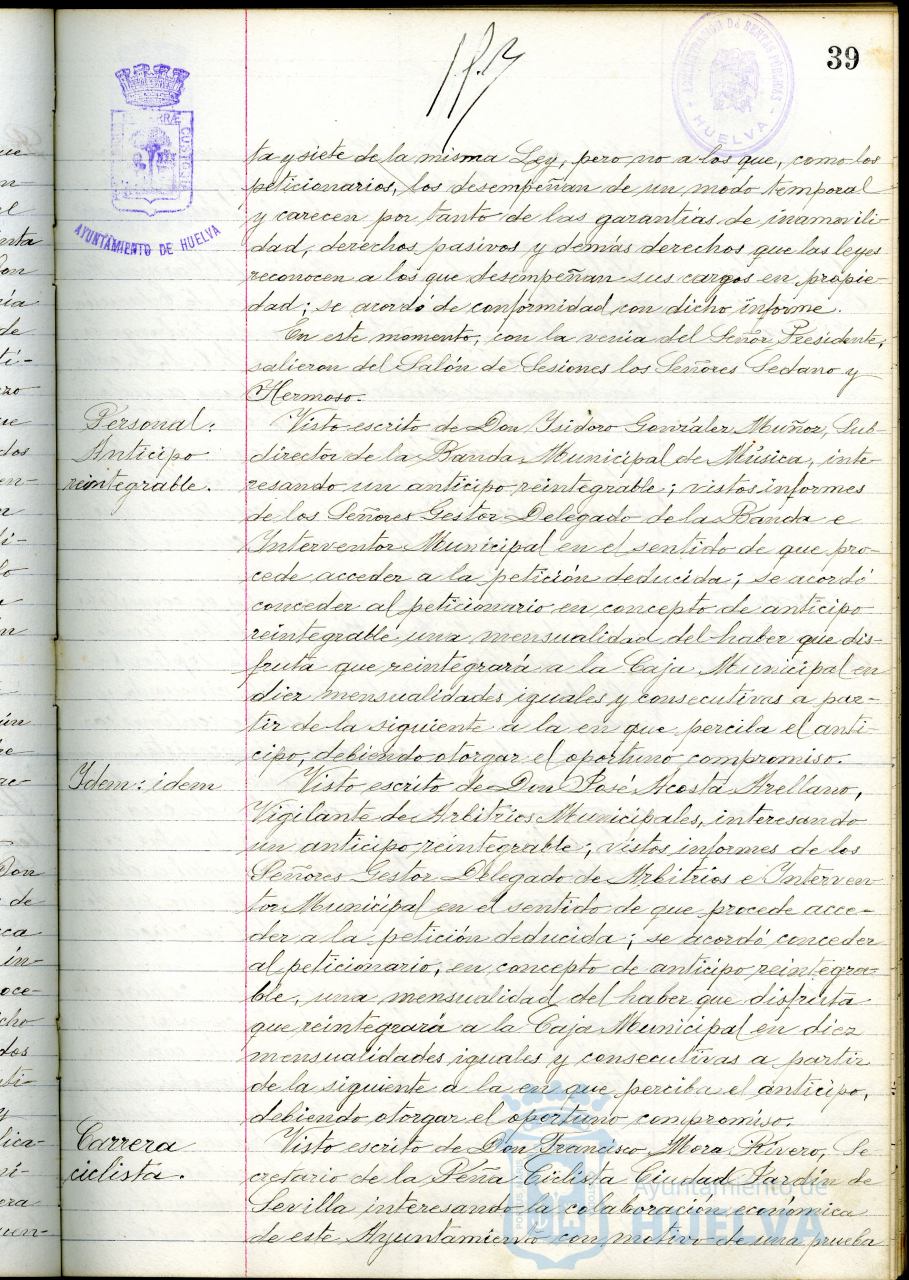 39
ADMINISTRACIÓN DE RENTAS PÚBLICAS
HUELVA
AYUNTAMIENTO DE HUELVA
ta y siete de la misma Ley, pero no a los que, como los
peticionarios, los desempeñan de un modo temporal
y carecen por tanto de las garantías de inamovili
dad, derechos pasivos y demás derechos que las leyes
reconocen a los que desempeñan sus cargos en propie-
dad; se acordó de conformidad con dicho informe.
En este momento, con la venia del Señor Presidente,
salieron del Salón de Sesiones los Señores Sedano y
Hermoso.
Personal:
Anticipo
reintegrable.
Visto escrito de Don Isidoro González Muñoz, Sub-
director de la Banda Municipal de Música, inte-
resando un anticipo reintegrable; vistos informes
de los Señores Gestor Delegado de la Banda e
Interventor Municipal en el sentido de que pro-
cede acceder a la petición deducida; se acordó
conceder al peticionario en concepto de anticipo
reintegrable una mensualidad del haber que dis-
fruta que reintegrará a la Caja Municipal en
diez mensualidades iguales y consecutivas a par-
tir de la siguiente a la en que perciba el anti-
cipo, debiendo otorgar el oportuno compromiso.
Idem: idem
Visto escrito de Don José Acosta Arellano,
Vigilante de Arbitrios Municipales, interesando
un anticipo reintegrable; vistos informes de los
Señores Gestor Delegado de Arbitrios e Interven
tor Municipal en el sentido de que procede acce-
der a la petición deducida; se acordó conceder
al peticionario, en concepto de anticipo reintegra-
ble, una mensualidad del haber que disfruta
que reintegrará a la Caja Municipal en diez
mensualidades iguales y consecutivas a partir
de la siguiente a la en que perciba el anticipo,
debiendo otorgar el oportuno compromiso.
Carrera
ciclista.
Visto escrito de Don Francisco Mora Rivero, Se
cretario de la Peña Ciclista Ciudad Jardín de
Sevilla interesando la colaboración económica
de este Ayuntamiento con motivo de una prueba
Ayuntamiento de
HUELVA